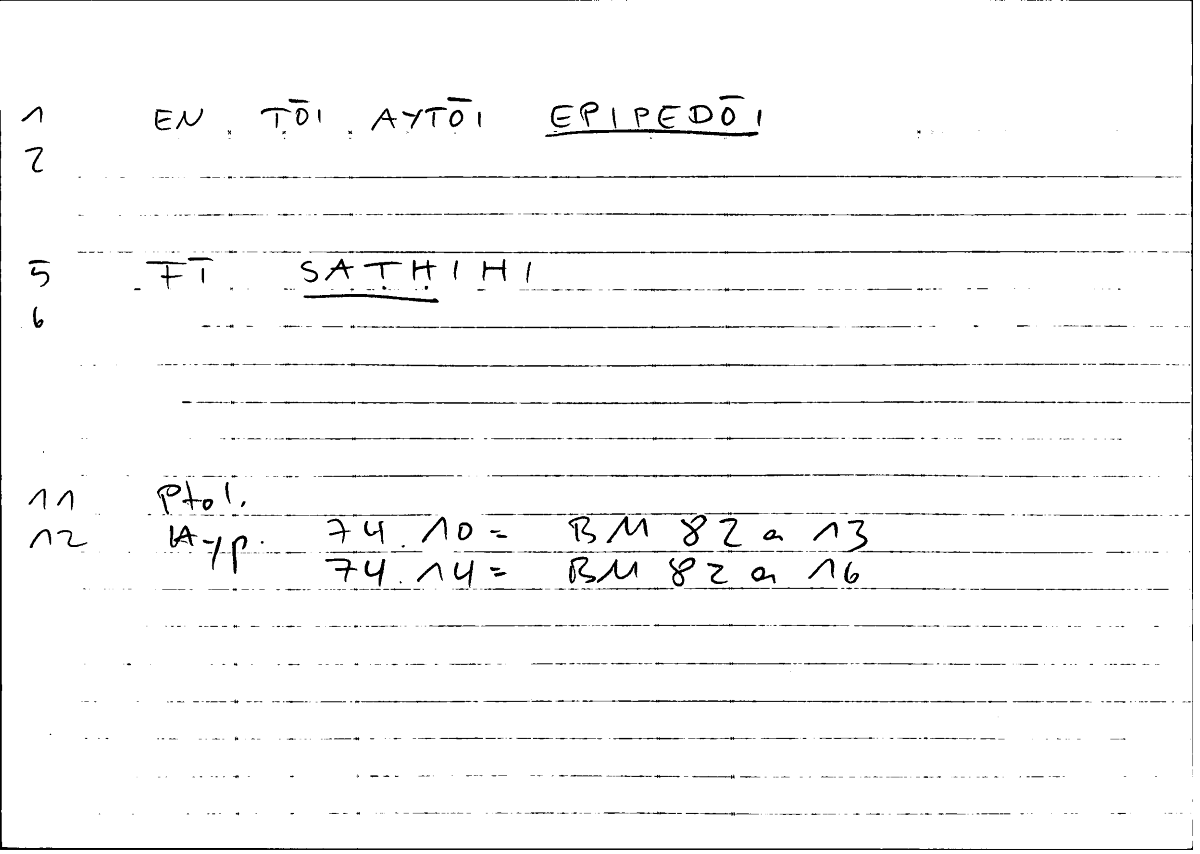 1 EN TŌI AYTŌI EPIPEDŌI
2
5 FĪ SATHIHI
6
11 Ptol.
12 Hyp. 74.10 = BM 82 a 13
74.14 = BM 82 a 16